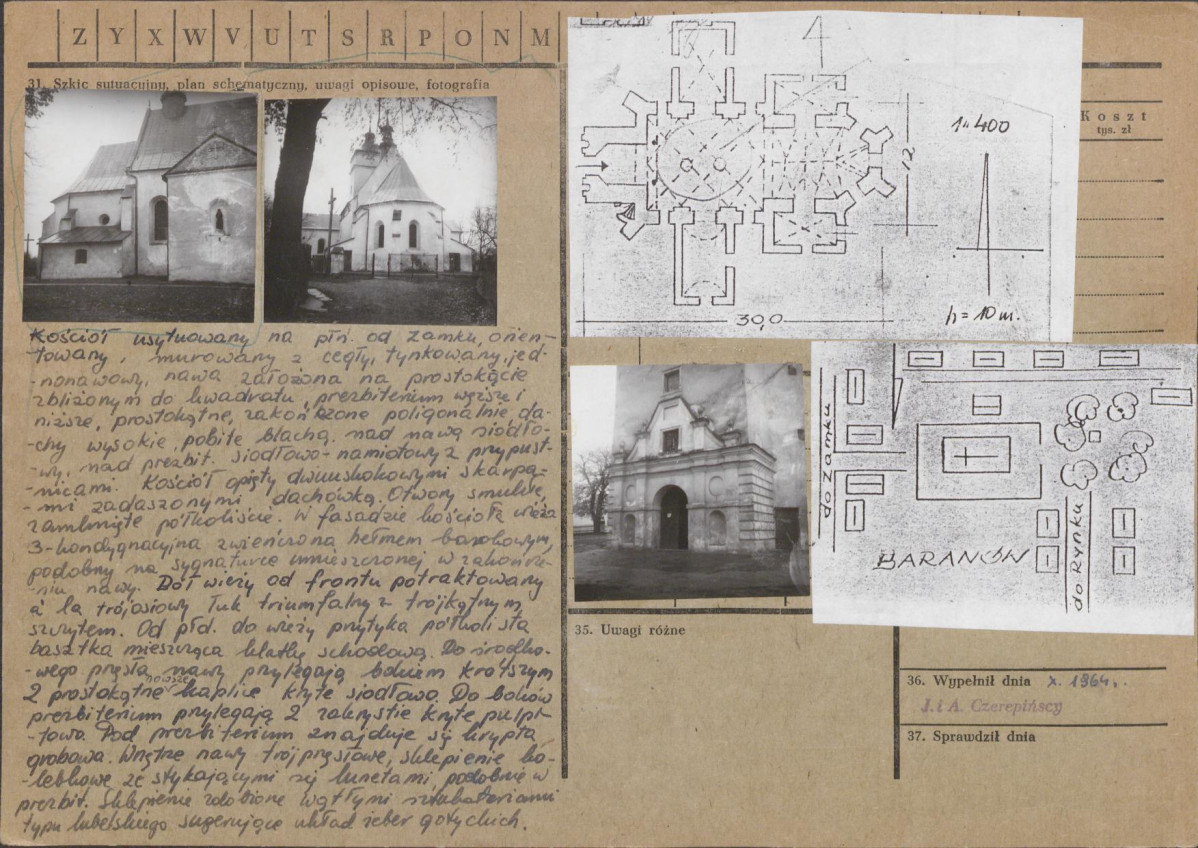 Z Y X W V U T S R P O N M
31. Szkic sytuacyjny, plan schematyczny, uwagi opisowe, fotografia
Kościół usytuowany na płn. od zamku, orien-
-towany, murowany z cegły, tynkowany, jed-
-nonawowy, nawa założona na prostokącie
zbliżonym do kwadratu, prezbiterium węższe i
niższe, prostokątne, zakończone poligonalnie, da-
-chy wysokie, pobite blachą. nad nawą siodło-
-wy, nad prezbit. siodłowo-namiotowy z przypust-
-nicami. Kościół opięty dwuuskokowymi skarpa-
-mi zadaszonymi dachówką. Otwory smukłe,
zamknięte półkoliście. W fasadzie kościoła wieża
3-kondygnacyjna zwieńczona hełmem barokowym,
podobny na sygnaturce umieszczonej w zakończe-
-niu nawy. Dół wieży od frontu potraktowany
a la trójosiowy łuk triumfalny z trójkątnym
szczytem. Od płd. do wieży przytyka półkolista
basztka mieszcząca klatkę schodową. Do środko-
-wego przęsła nawy przylegają bokiem krótszym
2 prostokątne nowsze kaplice kryte siodłowo. Do boków
prezbiterium przylegają 2 zakrystie kryte pulpi-
-towo. Pod prezbiterium znajduje się krypta
grobowa. Wnętrze nawy trójprzęsłowe, sklepienie ko-
-lebkowe ze stykającymi się lunetami, podobnie w
prezbit. Sklepienie zdobione wątłymi sztukateriami
typu lubelskiego sugerujące układ żeber gotyckich.
1:400
12
30,0
h = 10 m.
Koszt
tys. zł
do zamku
BARANÓW
do RYNKU
35. Uwagi różne
36. Wypełnił dnia X. 1964.
J. i A. Czerepińscy
37. Sprawdził dnia